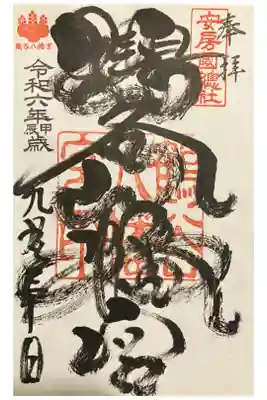 奉拝
安房國總社
鶴谷八幡宮
鶴谷八幡宮
鶴谷八幡宮
令和六年甲辰歳
九月 日